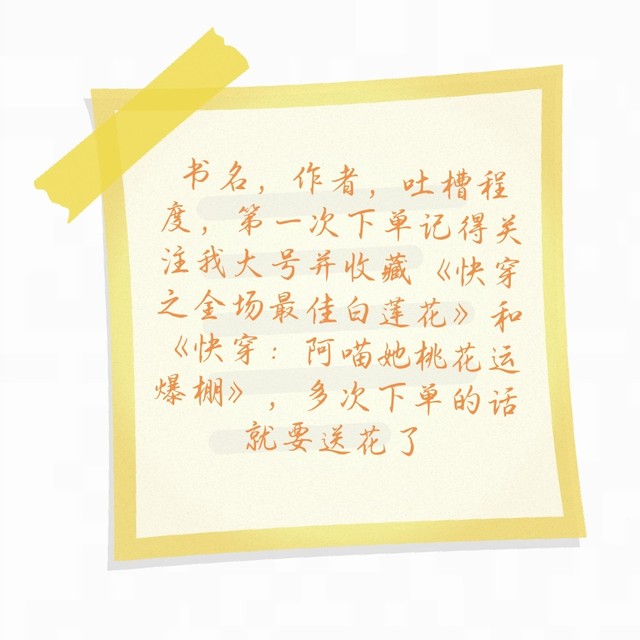 书名，作者，吐槽程
度，第一次下单记得关
注我大号并收藏《快穿
之金场最佳白莲花》和
《快穿：阿喵她桃花运
爆棚》，多次下单的话
就要送花了